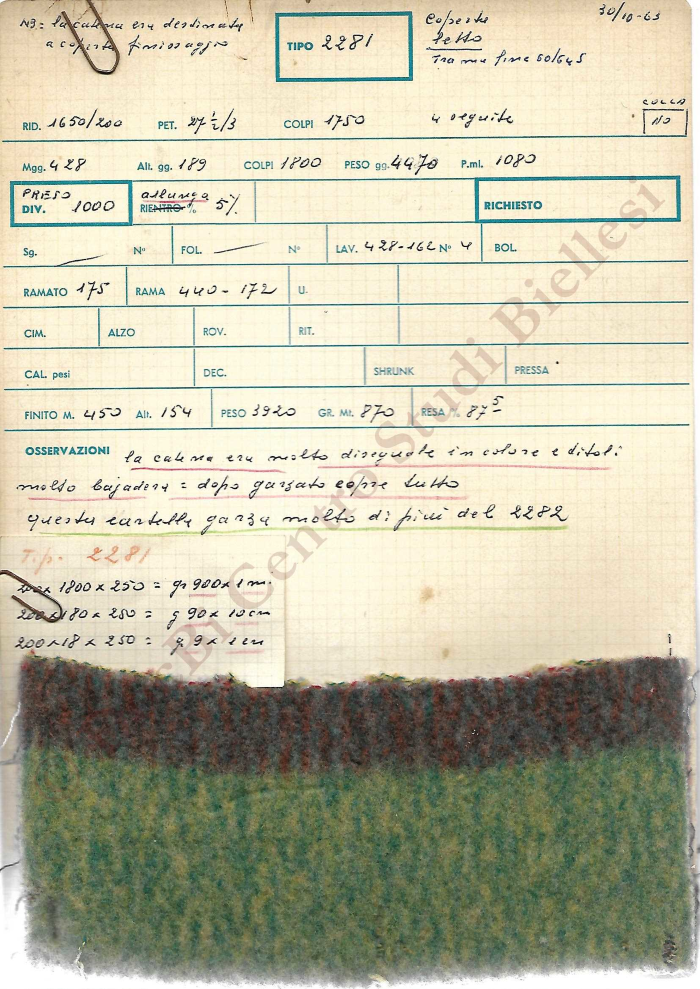 NB: la catena era destinata
a coperte finissaggio
TIPO 2281
Coperte
letto
Trama fine 60/645
30/10-63
RID. 1650/200 PET. 27 1/2/3 COLPI 1750 4 seguite
COLLA
NO
Mgg. 428 Alt. gg. 189 COLPI 1800 PESO gg. 4470 P.ml. 1080
PRESO
DIV. 1000
allunga
RIENTRO % 5%
RICHIESTO
Sg. — N° FOL. — N° LAV. 428-162 N° 4 BOL.
RAMATO 175 RAMA 440-172 U.
CIM. ALZO ROV. RIT.
CAL. pesi DEC. SHRUNK PRESSA
FINITO M. 450 Alt. 154 PESO 3920 GR. Mt. 870 RESA % 87 5
OSSERVAZIONI la catena era molto diseguale in colore e ditoli
molto bajadera = dopo garzato copre tutto
questa cartella garza molto di più del 2282
Tip. 2281
200 x 1800 x 250 = gr 900 x 1 m.
200 x 180 x 250 = g 90 x 10 cm
200 x 18 x 250 = g 9 x 1 cm
Centro Studi Biellesi